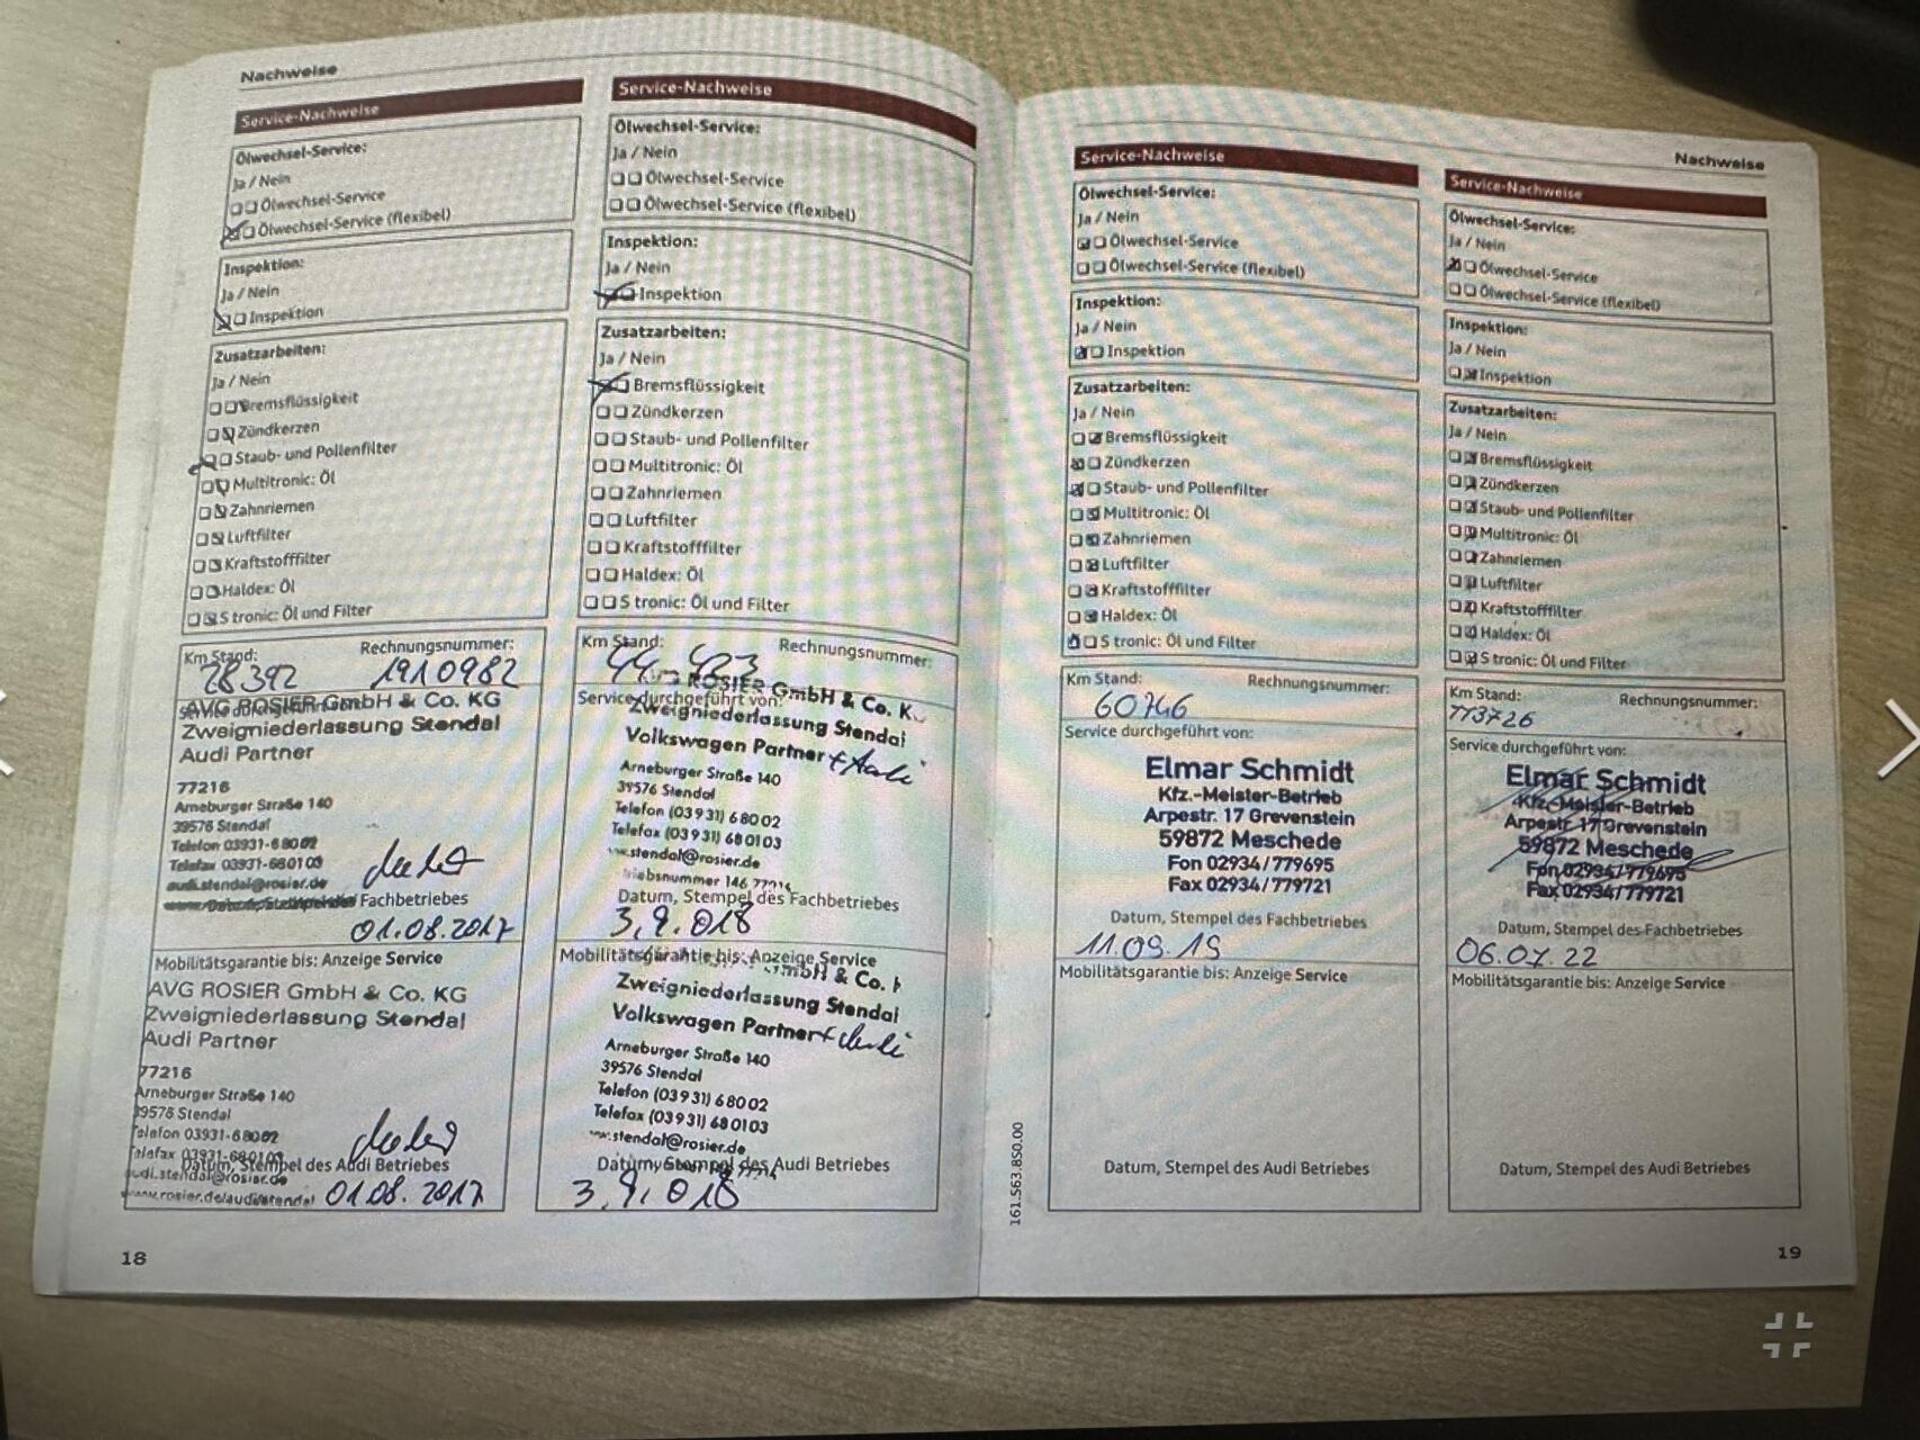 Nachweise
Service-Nachweise
Ölwechsel-Service:
Ja / Nein
Ölwechsel-Service
Ölwechsel-Service (flexibel)
Inspektion:
Ja / Nein
Inspektion
Zusatzarbeiten:
Ja / Nein
Bremsflüssigkeit
Zündkerzen
Staub- und Pollenfilter
Multitronic: Öl
Zahnriemen
Luftfilter
Kraftstofffilter
Haldex: Öl
S tronic: Öl und Filter
Km Stand: Rechnungsnummer:
28392 1910982
AVG ROSIER GmbH & Co. KG
Zweigniederlassung Stendal
Audi Partner
77216
Arneburger Straße 140
39576 Stendal
Telefon 03931-6 80 02
Telefax 03931-68 01 03
audi.stendal@rosier.de
Fachbetriebes
01.08.2017
Mobilitätsgarantie bis: Anzeige Service
AVG ROSIER GmbH & Co. KG
Zweigniederlassung Stendal
Audi Partner
77216
Arneburger Straße 140
39576 Stendal
Telefon 03931-6 80 02
Telefax 03931-68 01 03
Datum, Stempel des Audi Betriebes
audi.stendal@rosier.de
www.rosier.de/audi/stendal 01.08.2017
18
Service-Nachweise
Ölwechsel-Service:
Ja / Nein
Ölwechsel-Service
Ölwechsel-Service (flexibel)
Inspektion:
Ja / Nein
Inspektion
Zusatzarbeiten:
Ja / Nein
Bremsflüssigkeit
Zündkerzen
Staub- und Pollenfilter
Multitronic: Öl
Zahnriemen
Luftfilter
Kraftstofffilter
Haldex: Öl
S tronic: Öl und Filter
Km Stand: Rechnungsnummer:
ROSIER GmbH & Co. K
Service durchgeführt von:
Zweigniederlassung Stendal
Volkswagen Partner
Arneburger Straße 140
39576 Stendal
Telefon (039 31) 6 80 02
Telefax (039 31) 68 01 03
stendal@rosier.de
Datum, Stempel des Fachbetriebes
3.9.018
Mobilitätsgarantie bis: Anzeige Service
GmbH & Co.
Zweigniederlassung Stendal
Volkswagen Partner
Arneburger Straße 140
39576 Stendal
Telefon (039 31) 6 80 02
Telefax (039 31) 68 01 03
stendal@rosier.de
Datum, Stempel des Audi Betriebes
3.9.018
Nachweise
Service-Nachweise
Ölwechsel-Service:
Ja / Nein
Ölwechsel-Service
Ölwechsel-Service (flexibel)
Inspektion:
Ja / Nein
Inspektion
Zusatzarbeiten:
Ja / Nein
Bremsflüssigkeit
Zündkerzen
Staub- und Pollenfilter
Multitronic: Öl
Zahnriemen
Luftfilter
Kraftstofffilter
Haldex: Öl
S tronic: Öl und Filter
Km Stand: Rechnungsnummer:
60746
Service durchgeführt von:
Elmar Schmidt
Kfz.-Meister-Betrieb
Arpestr. 17 Grevenstein
59872 Meschede
Fon 02934/779695
Fax 02934/779721
Datum, Stempel des Fachbetriebes
11.09.19
Mobilitätsgarantie bis: Anzeige Service
Datum, Stempel des Audi Betriebes
161.563.8S0.00
Service-Nachweise
Ölwechsel-Service:
Ja / Nein
Ölwechsel-Service
Ölwechsel-Service (flexibel)
Inspektion:
Ja / Nein
Inspektion
Zusatzarbeiten:
Ja / Nein
Bremsflüssigkeit
Zündkerzen
Staub- und Pollenfilter
Multitronic: Öl
Zahnriemen
Luftfilter
Kraftstofffilter
Haldex: Öl
S tronic: Öl und Filter
Km Stand: Rechnungsnummer:
113726
Service durchgeführt von:
Elmar Schmidt
Kfz.-Meister-Betrieb
Arpestr. 17 Grevenstein
59872 Meschede
Fon 02934/779695
Fax 02934/779721
Datum, Stempel des Fachbetriebes
06.07.22
Mobilitätsgarantie bis: Anzeige Service
Datum, Stempel des Audi Betriebes
19